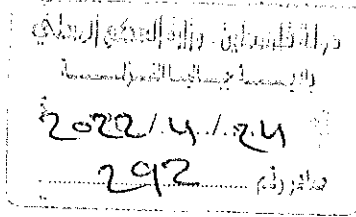 دولة فلسطين - وزارة الحكم المحلي
2022/4/24
صادر رقم 292